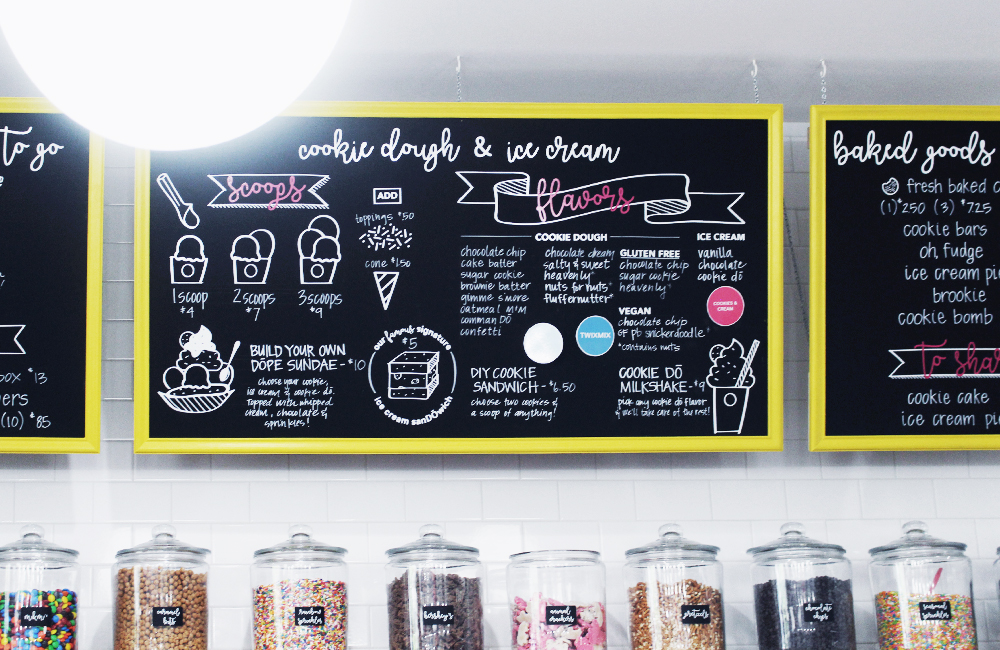 to go
box $13
(10) $85
cookie dough & ice cream
scoops
1 scoop
$4
2 scoops
$7
3 scoops
$9
ADD
toppings $.50
cone $1.50
flavors
COOKIE DOUGH
chocolate chip
cake batter
sugar cookie
brownie batter
gimme s'more
oatmeal m'm
comman DŌ
confetti
chocolate dream
salty & sweet
heavenly*
nuts for nuts*
fluffernutter*
GLUTEN FREE
chocolate chip
sugar cookie
heavenly*
VEGAN
chocolate chip
gf pb snickerdoodle*
*contains nuts
ICE CREAM
vanilla
chocolate
cookie dō
COOKIES &
CREAM
TWIXMIX
BUILD YOUR OWN
DŌPE SUNDAE - $10
choose your cookie,
ice cream & cookie dō.
Topped with whipped
cream, chocolate &
sprinkles!
our famous signature
$5
ice cream sanDŌwich
DIY COOKIE
SANDWICH - $6.50
choose two cookies &
a scoop of anything!
COOKIE DŌ
MILKSHAKE - $9
pick any cookie dō flavor
& we'll take care of the rest!
baked goods
fresh baked c
(1) $2.50 (3) $7.25
cookie bars
oh, fudge
ice cream pi
brookie
cookie bomb
to shar
cookie cake
ice cream pi
m&m's
caramel
bits
rainbow
sprinkles
hershey's
animal
crackers
pretzels
chocolate
chips
seasonal
sprinkles